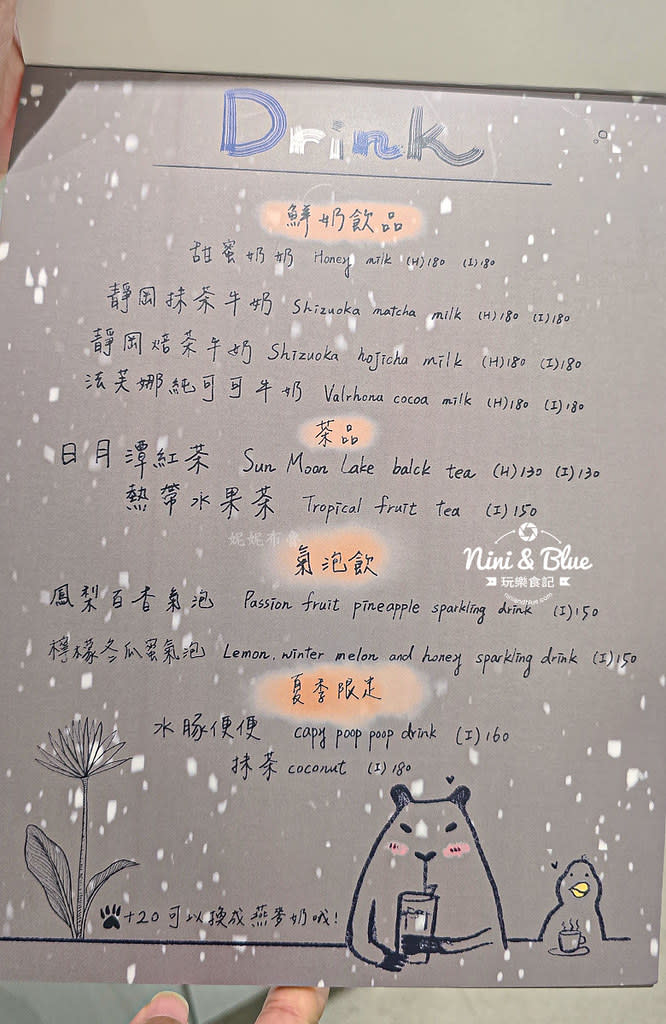 Drink
鮮奶飲品
甜蜜奶奶 Honey milk (H)180 (I)180
靜岡抹茶牛奶 Shizuoka matcha milk (H)180 (I)180
靜岡焙茶牛奶 Shizuoka hojicha milk (H)180 (I)180
法芙娜純可可牛奶 Valrhona cocoa milk (H)180 (I)180
茶品
日月潭紅茶 Sun Moon Lake balck tea (H)130 (I)130
熱帶水果茶 Tropical fruit tea (I)150
妮妮布魯
Nini & Blue
玩樂食記
niniandblue.com
氣泡飲
鳳梨百香氣泡 Passion fruit pineapple sparkling drink (I)150
檸檬冬瓜蜜氣泡 Lemon, winter melon and honey sparkling drink (I)150
夏季限定
水豚便便 capy poop poop drink (I)160
抹茶 coconut (I)180
+20可以換成燕麥奶哦!